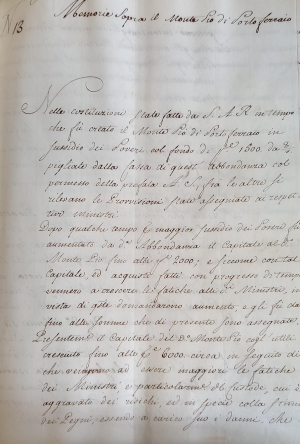 N 13
Memorie Sopra il Monte Pio di Porto ferraio
Nelle costituzioni state fatte da S. A. R. in tempo
che fù creato il Monte Pio di Porto ferraio in
sussidio dei Poveri col fondo di 1500 da
pigliare dalla Cassa di quest' abbondanza col
permesso della prefata A. S., fra le altre si
rilevano le Provvisioni state assegnate ai respet-
tivi ministri.
Dopo qualche tempo e maggior sussidio dei Poveri fù
aumentato da dª Abbondanza il Capitale al dº
Monto Pio fino alle 2000; e siccome con tal
Capitale, ed acquisti fatti con progresso di tempo
vennero a crescere le fatiche alli di Ministri, in
vista di queste domandarono aumento, e gli fù dato
fino alle somme che di presente sono assegnate.
Presentemente il Capitale del dº Monte Pio cogl' utili
cresciuto fino alle 6000 circa, in seguito di
che vengono ad essere maggiori le fatiche
dei Ministri, e particolarmente del Custode, cui è
aggravato dei rischi, ed in specie colla
dei Pegni, essendo a carico suo i danni, che